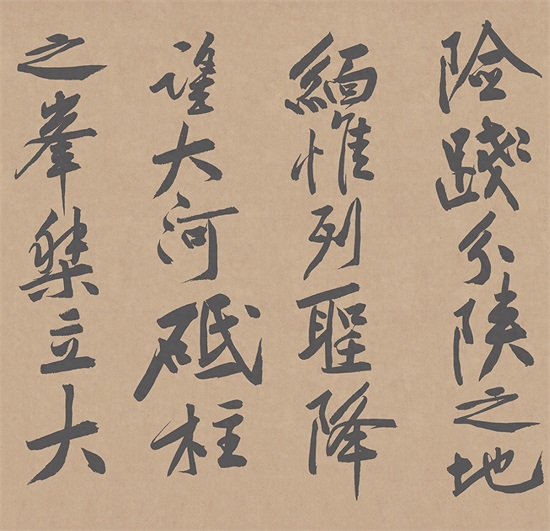 險踐分陝之地
緬惟列聖降
望大河砥柱
之峯桀立大